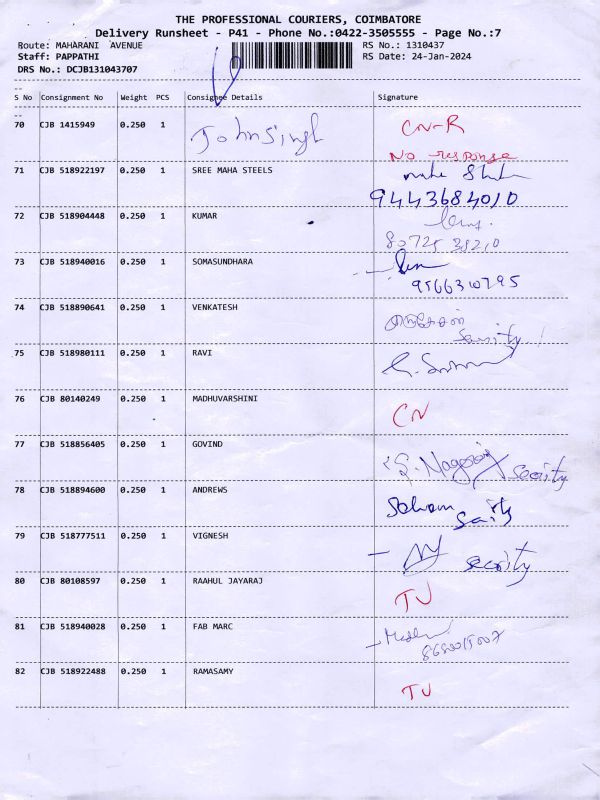 THE PROFESSIONAL COURIERS, COIMBATORE
Delivery Runsheet - P41 - Phone No.:0422-3505555 - Page No.:7
Route: MAHARANI AVENUE RS No.: 1310437
Staff: PAPPATHI RS Date: 24-Jan-2024
DRS No.: DCJB131043707
S No Consignment No Weight PCS Consignee Details Signature
70 CJB 1415949 0.250 1 John Singh CN-R
No response
71 CJB 518922197 0.250 1 SREE MAHA STEELS
9443684010
72 CJB 518904448 0.250 1 KUMAR
80725 38210
73 CJB 518940016 0.250 1 SOMASUNDHARA
9566310795
74 CJB 518890641 0.250 1 VENKATESH
75 CJB 518980111 0.250 1 RAVI
76 CJB 80140249 0.250 1 MADHUVARSHINI CN
77 CJB 518856405 0.250 1 GOVIND S. Nagaraj secrity
78 CJB 518894600 0.250 1 ANDREWS
79 CJB 518777511 0.250 1 VIGNESH secrity
80 CJB 80108597 0.250 1 RAAHUL JAYARAJ TU
81 CJB 518940028 0.250 1 FAB MARC
82 CJB 518922488 0.250 1 RAMASAMY TU